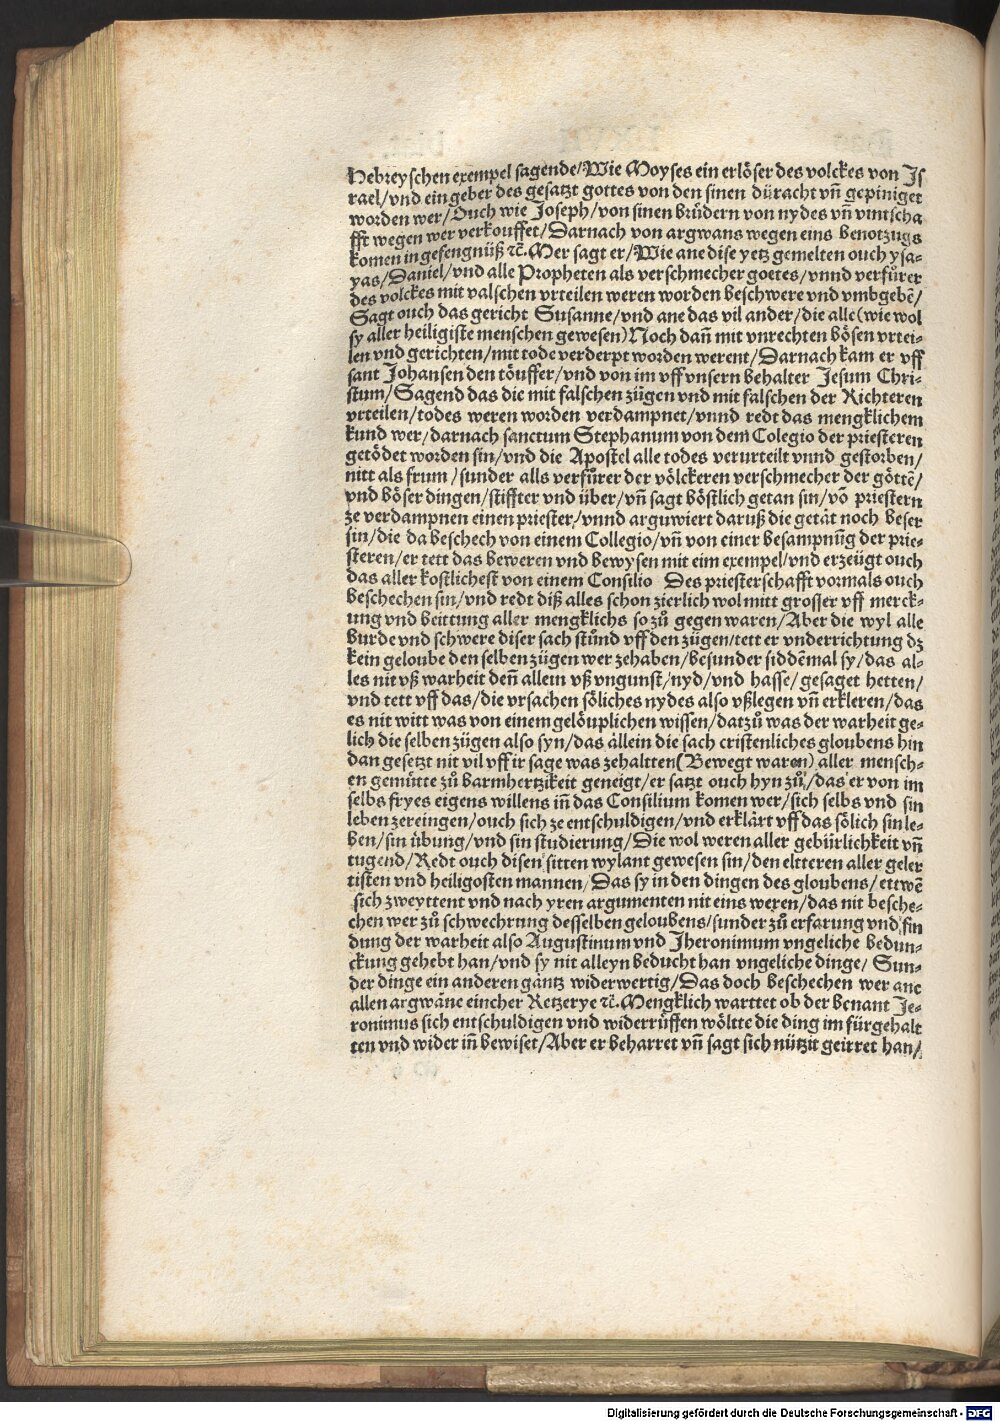 Hebreyschen exempel sagende/Wie Moyses ein erlöser des volckes von Js
rael/vnd ein geber des gesatzt gottes von den sinen düracht vn̄ gepiniget
worden wer/Ouch wie Joseph/von sinen brůdern von nydes vn̄ vintscha
fft wegen wer verkouffet/Darnach von argwans wegen eins benotzugs
komen in gefengnüß ⁊c̄.Mer sagt er/Wie ane dise yetz gemelten ouch ysa-
yas/Daniel/vnd alle Propheten als verschmecher goetes/vnnd verfůrer
des volckes mit valschen vrteilen weren worden beschwere vnd vmbgebē/
Sagt ouch das gericht Susanne/vnd ane das vil ander/die alle(wie wol
sy aller heiligiste menschen gewesen)Noch dan̄ mit vnrechten bösen vrtei-
len vnd gerichten/mit tode verderpt worden werent/Darnach kam er vff
sant Johansen den töuffer/vnd von im vff vnsern behalter Jesum Chri-
stum/Sagend das die mit falschen zügen vnd mit falschen der Richteren
vrteilen/todes weren worden verdampnet/vnnd redt das mengklichem
kund wer/darnach sanctum Stephanum von dem Colegio der priesteren
getödet worden sin/vnd die Apostel alle todes verurteilt vnnd gestorben/
nitt als frum/sunder alls verfůrer der völckeren verschmecher der göttē/
vnd böser dingen/stiffter vnd über/vn̄ sagt böstlich getan sin/vō priestern
ze verdampnen einen priester/vnnd arguwiert daruß die getät noch beser
sin/die da beschech von einem Collegio/vn̄ von einer besampnūg der prie-
steren/er tett das beweren vnd bewysen mit eim exempel/vnd erzeügt ouch
das aller kostlichest von einem Consilio Des priesterschafft vormals ouch
beschechen sin/vnd redt diß alles schon zierlich wol mitt grosser vff merck-
ung vnd beittung aller mengklichs so zů gegen waren/Aber die wyl alle
burde vnd schwere diser sach stůnd vff den zügen/tett er vnderrichtung dz
kein geloube den selben zügen wer ze haben/besunder siddēmal sy/das al-
les nit vß warheit den̄ allein vß vngunst/nyd/vnd hasse/gesaget hetten/
vnd tett vff das/die vrsachen söliches nydes also vßlegen vn̄ erkleren/das
es nit witt was von einem gelöuplichen wissen/datzů was der warheit ge-
lich die selben zügen also syn/das allein die sach cristenliches gloubens hin
dan gesetzt nit vil vff ir sage was zehaltten(Bewegt waren)aller mensch-
en gemütte zů barmhertzikeit geneigt/er satzt ouch hyn zů/das er von im
selbs fryes eigens willens in̄ das Consilium komen wer/sich selbs vnd sin
leben ze reingen/ouch sich ze entschuldigen/vnd erklärt vff das sölich sin le-
ben/sin übung/vnd sin studierung/Die wol weren aller gebürlichkeit vn̄
tugend/Redt ouch disen sitten wylant gewesen sin/den eltteren aller geler
tisten vnd heiligosten mannen/Das sy in den dingen des gloubens/ettwē
sich zweyttent vnd nach yren argumenten nit eins weren/das nit besche-
chen wer zů schwechrung desselben geloubens/sunder zů erfarung vnd fin
dung der warheit also Augustinum vnd Jheronimum vngeliche bedun-
ckung gehebt han/vnd sy nit alleyn beducht han vngeliche dinge/ Sun-
der dinge ein anderen gantz widerwertig/Das doch beschechen wer ane
allen argwāne eincher Retzerye ⁊c̄.Mengklich warttet ob der benant Je-
ronimus sich entschuldigen vnd widerrůffen wöltte die ding im fürgehalt
ten vnd wider in̄ bewiset/Aber er beharret vn̄ sagt sich nützit geirret han/
Digitalisierung gefördert durch die Deutsche Forschungsgemeinschaft - DFG